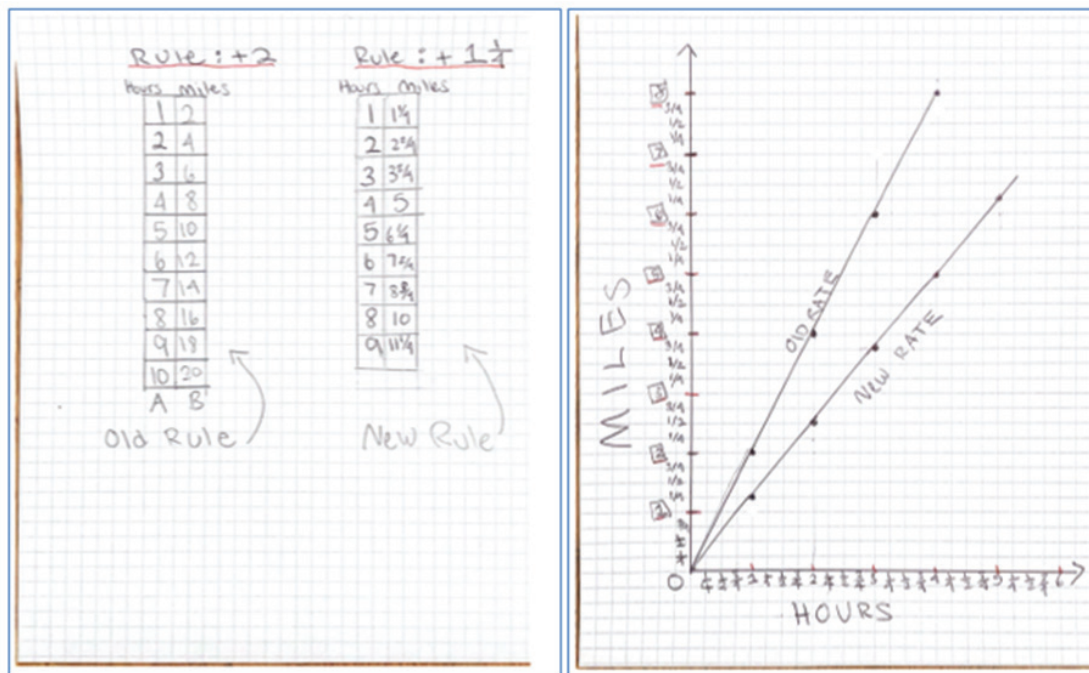 Rule: +2
Hours Miles
1 2
2 4
3 6
4 8
5 10
6 12
7 14
8 16
9 18
10 20
A B
Old Rule
Rule: + 1 1/4
Hours Miles
1 1 1/4
2 2 2/4
3 3 3/4
4 5
5 6 1/4
6 7 2/4
7 8 3/4
8 10
9 11 1/4
New Rule
MILES
8
3/4
1/2
1/4
7
3/4
1/2
1/4
6
3/4
1/2
1/4
5
3/4
1/2
1/4
4
3/4
1/2
1/4
3
3/4
1/2
1/4
2
3/4
1/2
1/4
1
OLD RATE
NEW RATE
0 1/4 1/2 3/4 1 1/4 1/2 3/4 2 1/4 1/2 3/4 3 1/4 1/2 3/4 4 1/4 1/2 3/4 5 1/4 1/2 3/4 6
HOURS